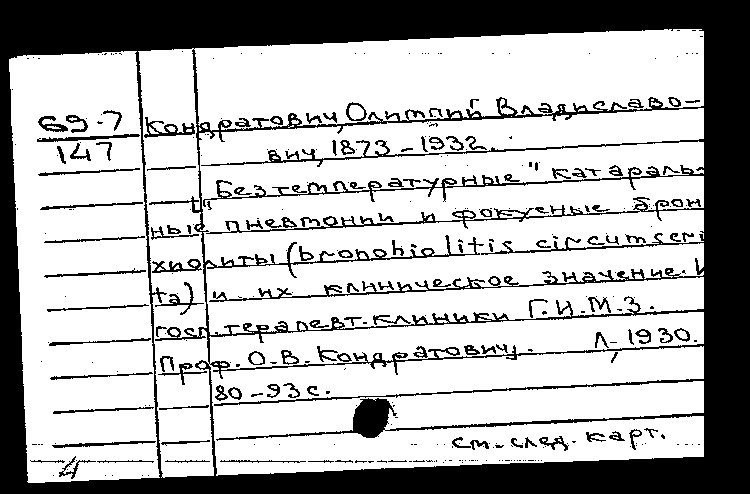 69-7 Кондратович, Олимпий Владиславо-
147 вич, 1873-1932.
„Безтемпературные" катараль-
ные пневмонии и фокусные брон
хиолиты (bronchiolitis circumscri
ta) и их клиническое значение. И
госп. терапевт. клиники Г.И.М.З.
Проф. О.В. Кондратович.
Л, 1930.
80-93 с.
см. след. карт.
4